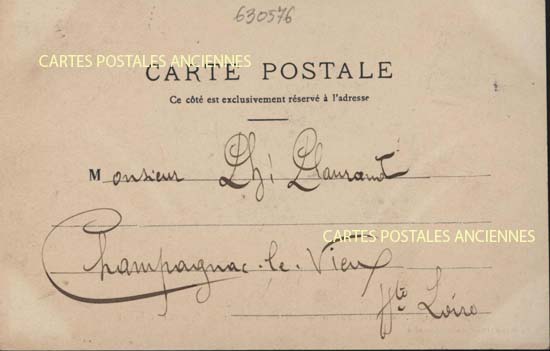 630576
CARTES POSTALES ANCIENNES
CARTE POSTALE
Ce côté est exclusivement réservé à l'adresse
Monsieur Ph:
CARTES POSTALES ANCIENNES
Champagnac-le-Vieux
Hte Loire